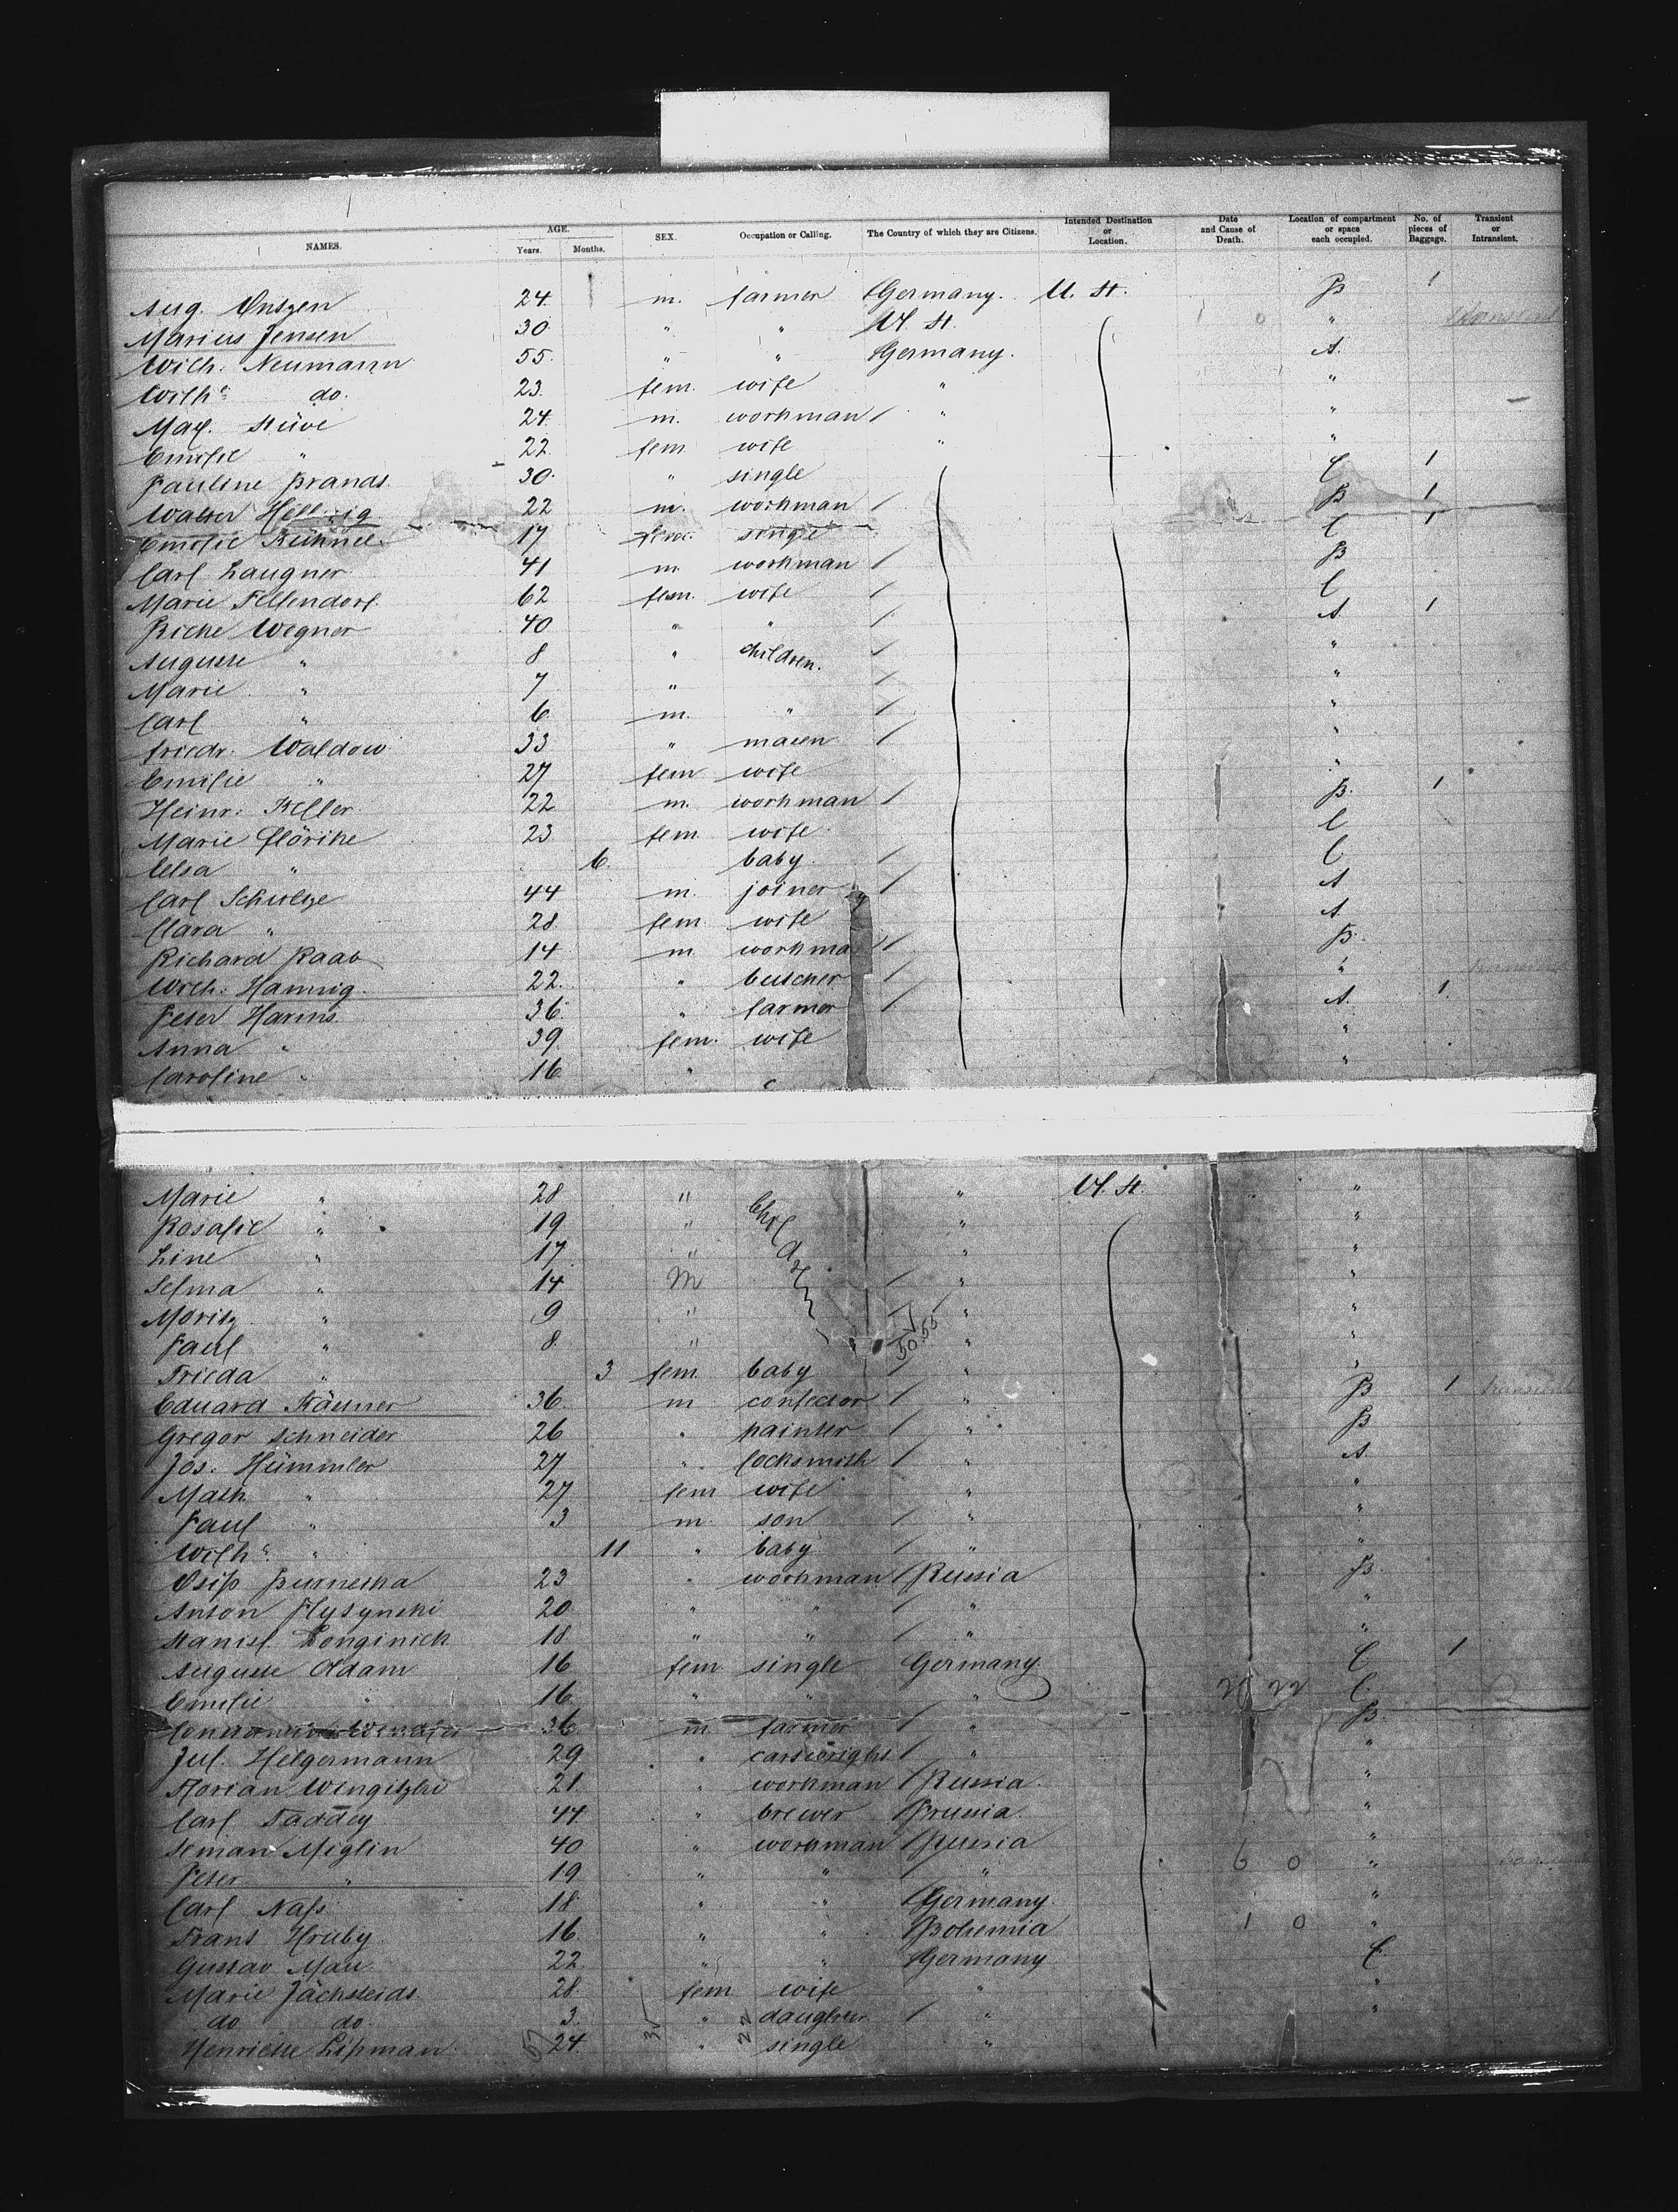 NAMES. AGE. Years. Months. SEX. Occupation or Calling. The Country of which they are Citizens. Intended Destination or Location. Date and Cause of Death. Location of compartment or space each occupied. No. of pieces of Baggage. Transient or Intransient.
Aug. 24 m. farmer Germany. U. St. B 1
Marius Jensen 30 " " U. St. 1 0 "
Wilh. Neumann 55 " " Germany. A.
Wilhe do. 23 fem. wife " "
Max. Stüve 24 m. workman / " "
Emilie " 22 fem. wife " "
Pauline Brandt 30 " single C 1
Walter Hellwig 22 m. workman / B 1
Emilie Kühnel 17 fem. single C 1
Carl Laugner 41 m. workman / B
Marie Fellendorf 62 fem. wife / C
Ricke Wegner 40 " " / A. 1
Auguste " 8 " children. / "
Marie " 7 " / "
Carl " 6 m. " / "
Friedr. Waldow 33 " mason / "
Emilie " 27 fem. wife "
Heinr. Keller 22 m. workman / B. 1
Marie Flörike 23 fem. wife C
Elsa " 6 baby / C
Carl Schultze 44 m. joiner / A
Clara " 28 fem. wife A
Richard Raab 14 m. workma / B.
Wilh. Hannig 22. " butcher / "
Peter Harms 36. " farmer / A. 1
Anna " 39 fem. wife "
Caroline " 16 " "
Marie " 28 " " U. St. "
Rosalie " 19 " " "
Line " 17 " " "
Selma " 14 M / " "
Moritz " 9 " / " "
Paul " 8. " " "
Frieda " 3 fem. baby / " "
Eduard 36 m confector / " B 1
Gregor Schneider 26 " painter / " B
Jos. Hümmler 27 " locksmith / " A.
Math. " 27 fem wife " "
Paul " 3 m. son / " "
Wilh. " 11 " baby / " "
Osip Burneska 23 " workman / Russia B.
Anton 20 " " / " "
Stanisl. 18 " " / " "
Auguste Adam 16 fem single Germany C 1
Emilie " 16 " " " 20 22 C.
36 m. farmer / " B.
Jul. Helgermann 29 " cartwright / " "
Florian 21 " workman / Russia. "
Carl Taddey 44 " brewer / Prussia. "
Seman Miglin 40 " workman / Russia "
Peter " 19 " " / " 6 0 "
Carl Nass 18 " " / Germany "
Frant Hruby 16 " " / Bohemia 1 0 "
Gustav Mau 22 " " / Germany C.
Marie 28. fem wife " "
do do. 3. " daughter / " "
Henriette Lipman 24. " single "